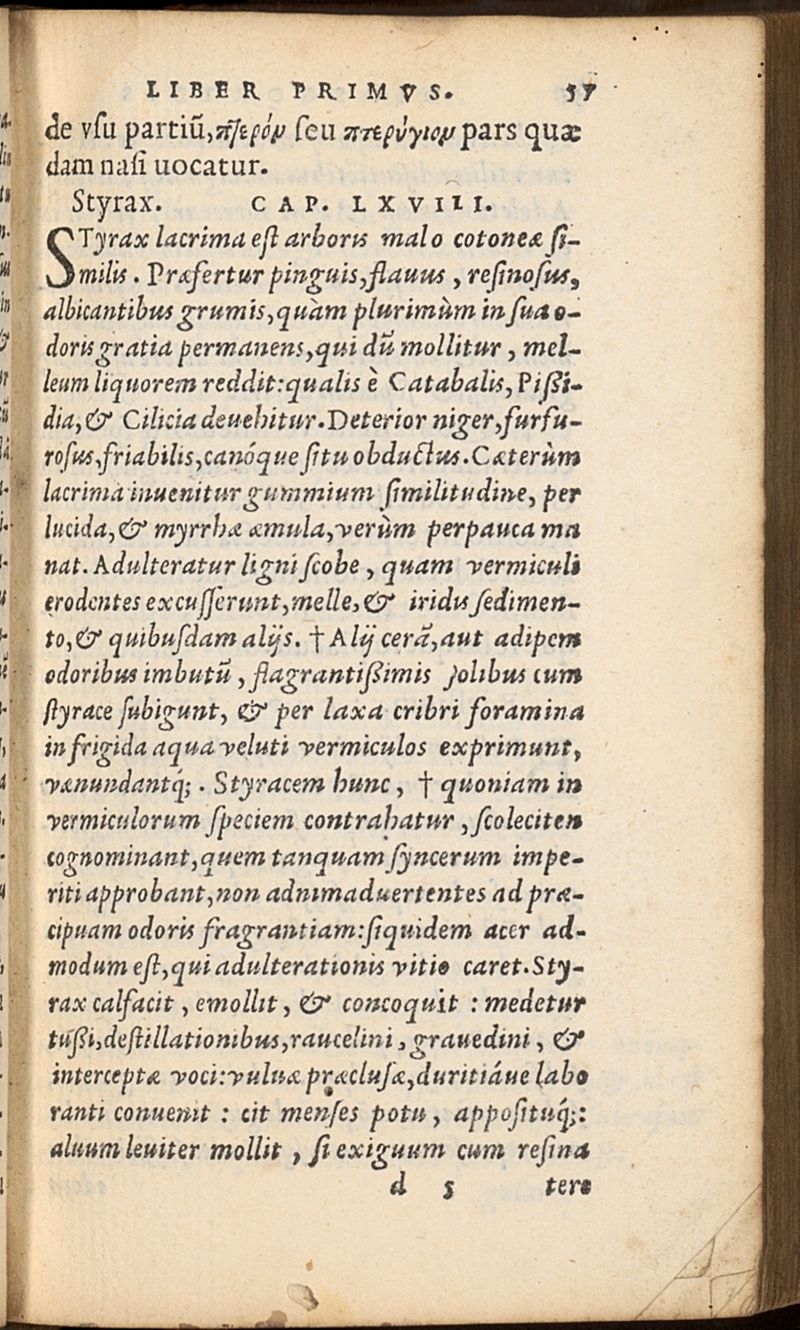 LIBER PRIMVS. 57
de vsu partiũ, πτερόν seu πτερύγιον pars quæ
dam nasi uocatur.
Styrax. CAP. LXVIII.
STyrax lacrima est arboris malo cotoneæ si-
milis. Præfertur pinguis, flauus, resinosus,
albicantibus grumis, quàm plurimùm in sua o-
doris gratia permanens, qui dũ mollitur, mel-
leum liquorem reddit: qualis è Catabalis, Pißi-
dia, & Cilicia deuehitur. Deterior niger, furfu-
rosus, friabilis, canóque situ obductus. Cæterùm
lacrima inuenitur gummium similitudine, per
lucida, & myrrhæ æmula, verùm perpauca ma
nat. Adulteratur ligni scobe, quam vermiculi
erodentes excusserunt, melle, & iridis sedimen-
to, & quibusdam alijs. † Alij cerã, aut adipem
odoribus imbutũ, flagrantißimis solibus cum
styrace subigunt, & per laxa cribri foramina
in frigida aqua veluti vermiculos exprimunt,
vænundantq́;. Styracem hunc, † quoniam in
vermiculorum speciem contrahatur, scoleciten
cognominant, quem tanquam syncerum impe-
riti approbant, non adnimaduertentes ad præ-
cipuam odoris fragrantiam: siquidem acer ad-
modum est, qui adulterationis vitio caret. Sty-
rax calfacit, emollit, & concoquit: medetur
tußi, destillationibus, raucelini, grauedini, &
interceptæ voci: vuluæ præclusæ, duritiáue labo
ranti conuenit: cit menses potu, appositúq́;:
aluum leuiter mollit, si exiguum cum resina
d 5 tere